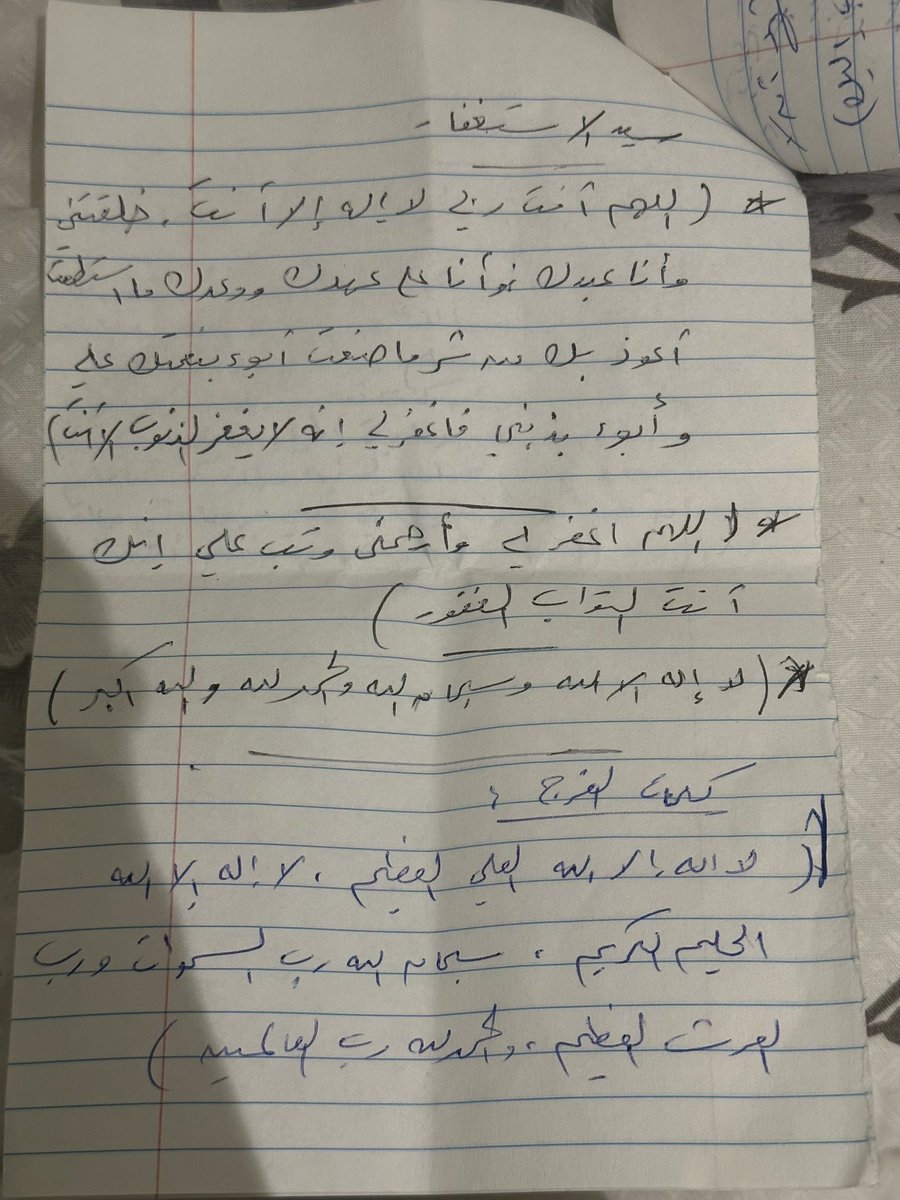 سيد الاستغفار
* (اللهم أنت ربي لا إله إلا أنت، خلقتني
وأنا عبدك وأنا على عهدك ووعدك ما استطعت
أعوذ بك من شر ما صنعت أبوء بنعمتك علي
وأبوء بذنبي فاغفر لي إنه لا يغفر الذنوب إلا أنت)
* (اللهم اغفر لي وأرحمني وتب علي إنك
أنت التواب الغفور)
* (لا إله الا الله وسبحان الله والحمد لله والله اكبر)
كلمات الفرج :
(لا اله إلا الله العلي العظيم، لا إله إلا الله
الحليم الكريم، سبحان الله رب السموات ورب
العرش العظيم، والحمد لله رب العالمين)